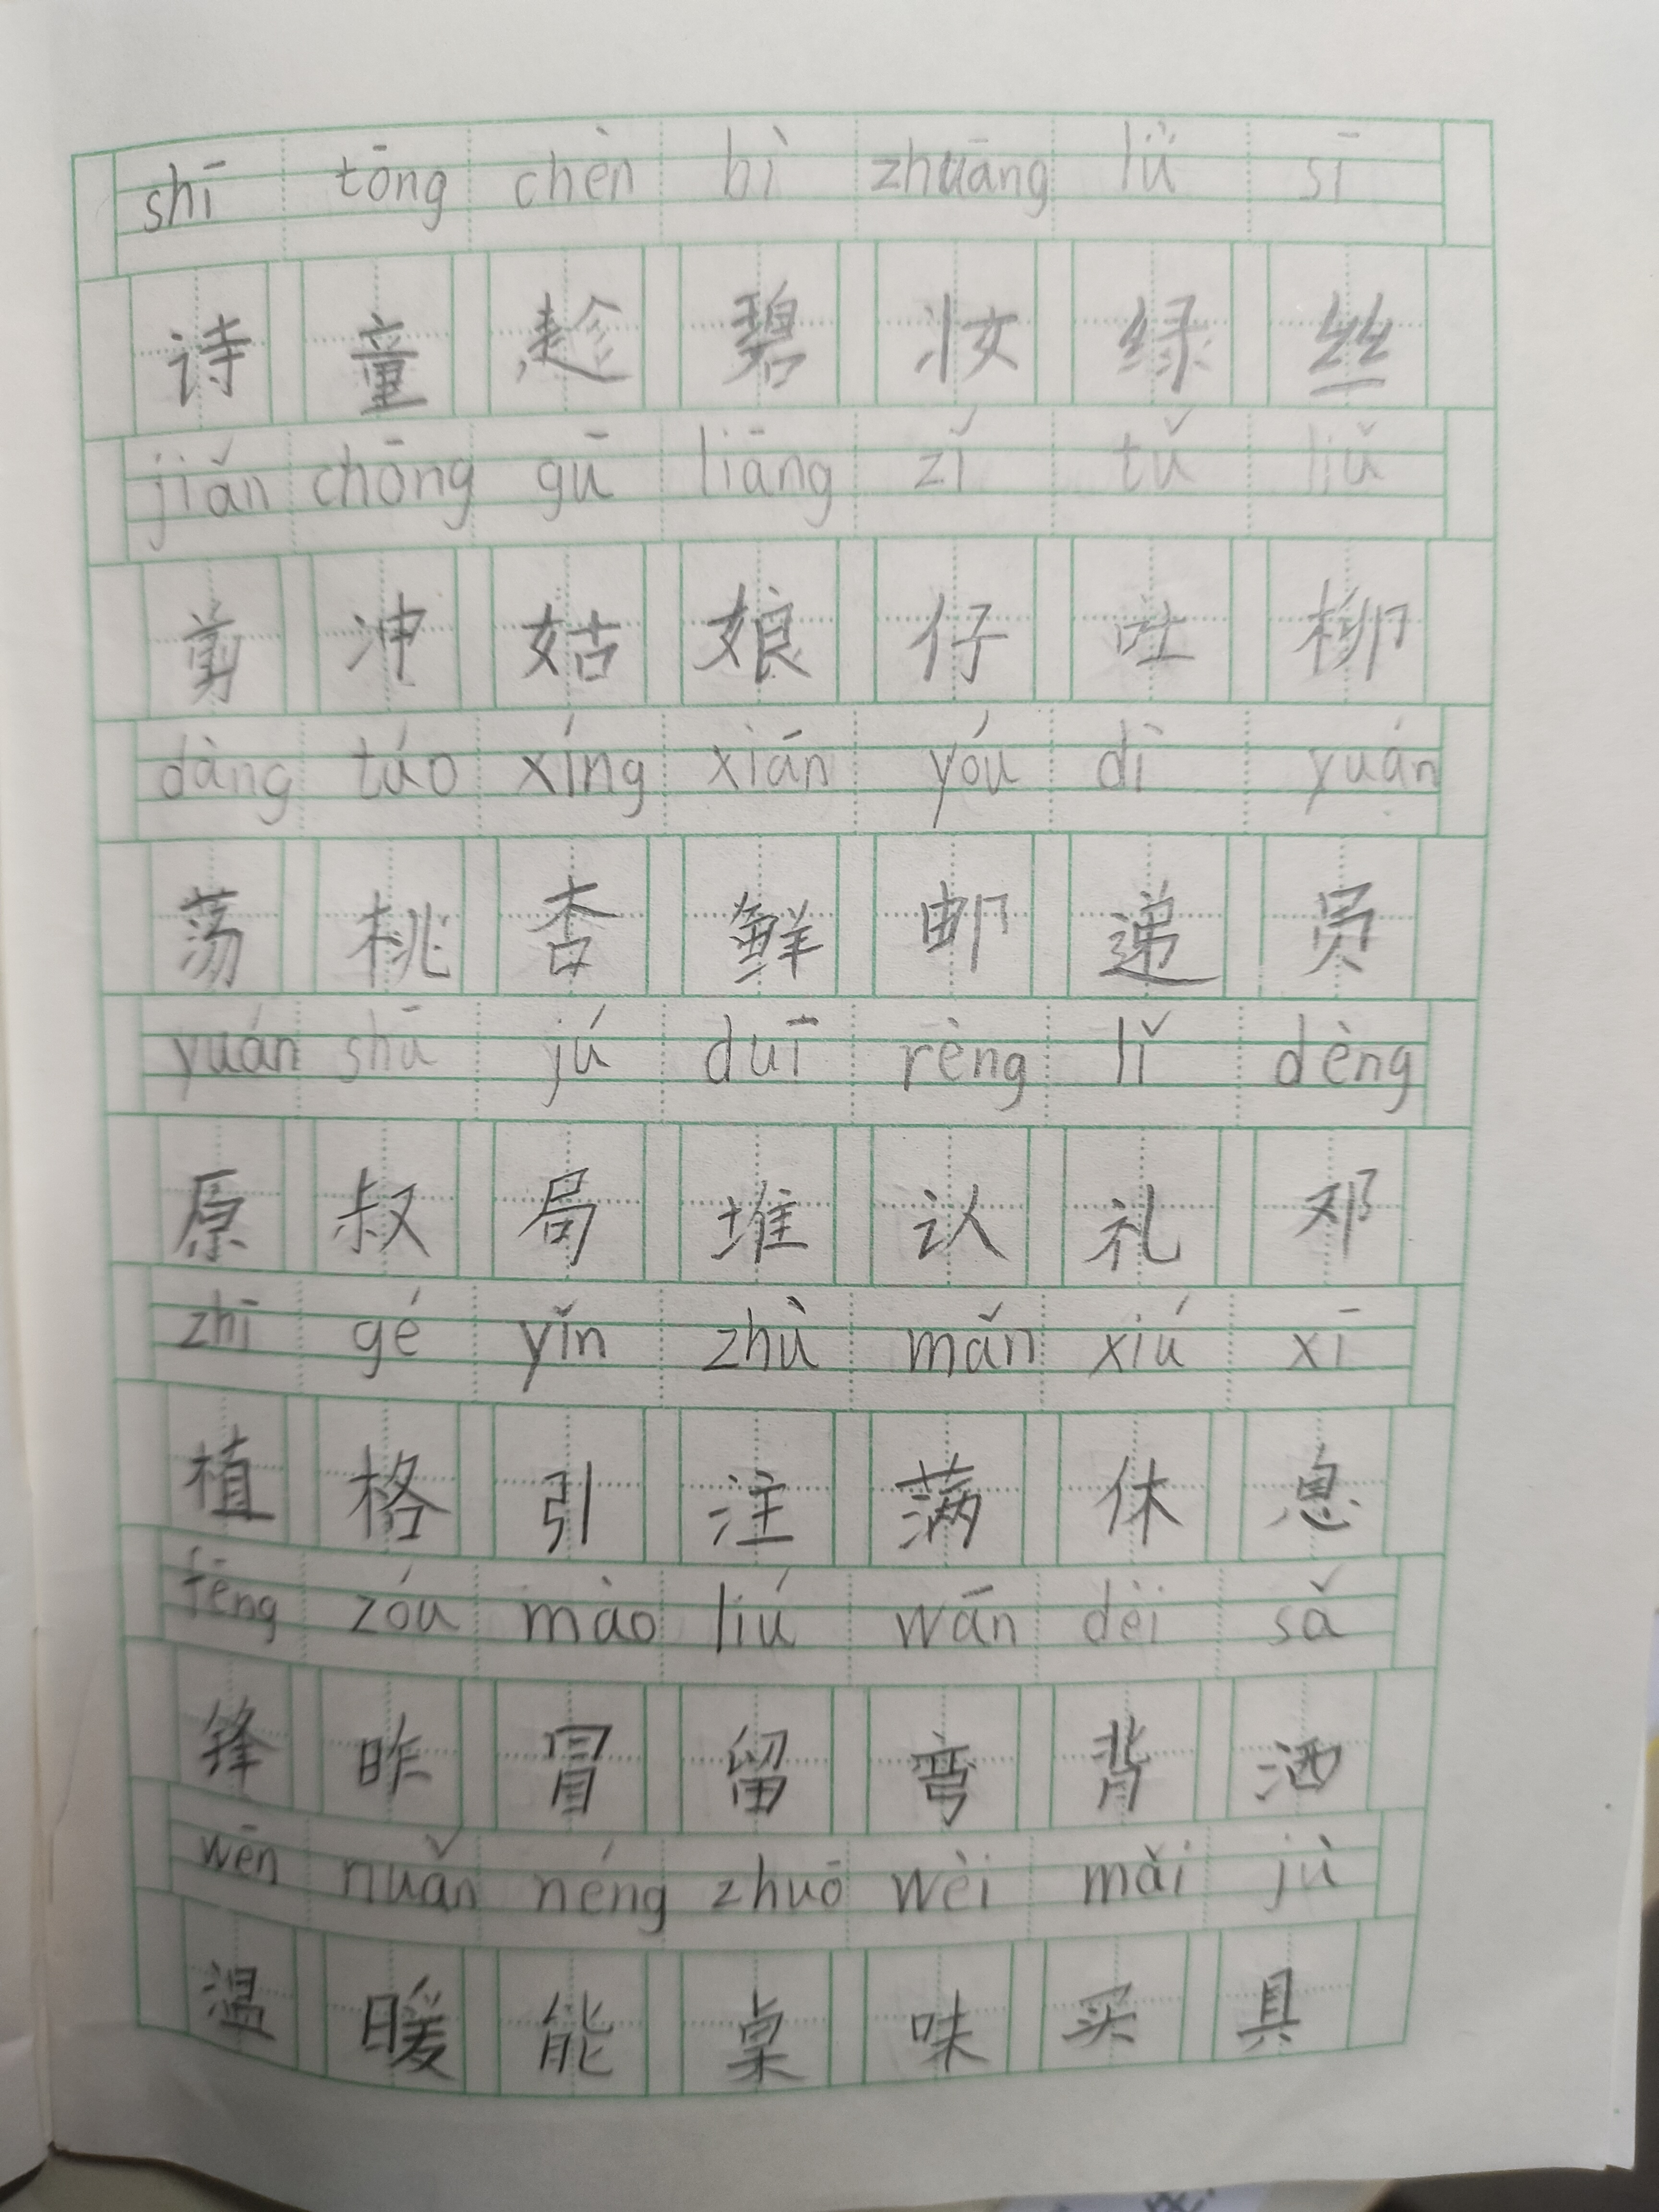 shī tōng chèn bì zhuāng lǜ sī
诗 童 趁 碧 妆 绿 丝
jiǎn chōng gū liāng zǐ tǔ liǔ
剪 冲 姑 娘 仔 吐 柳
dàng táo xíng xiān yóu dì yuán
荡 桃 杏 鲜 邮 递 员
yuán shū jú duī rèng lǐ dèng
原 叔 局 堆 认 礼 邓
zhī gé yǐn zhù mǎn xiú xī
植 格 引 注 满 休 息
fēng zóu mào liú wān dèi sǎ
锋 昨 冒 留 弯 背 洒
wēn nuǎn néng zhuō wèi mǎi jù
温 暖 能 桌 味 买 具